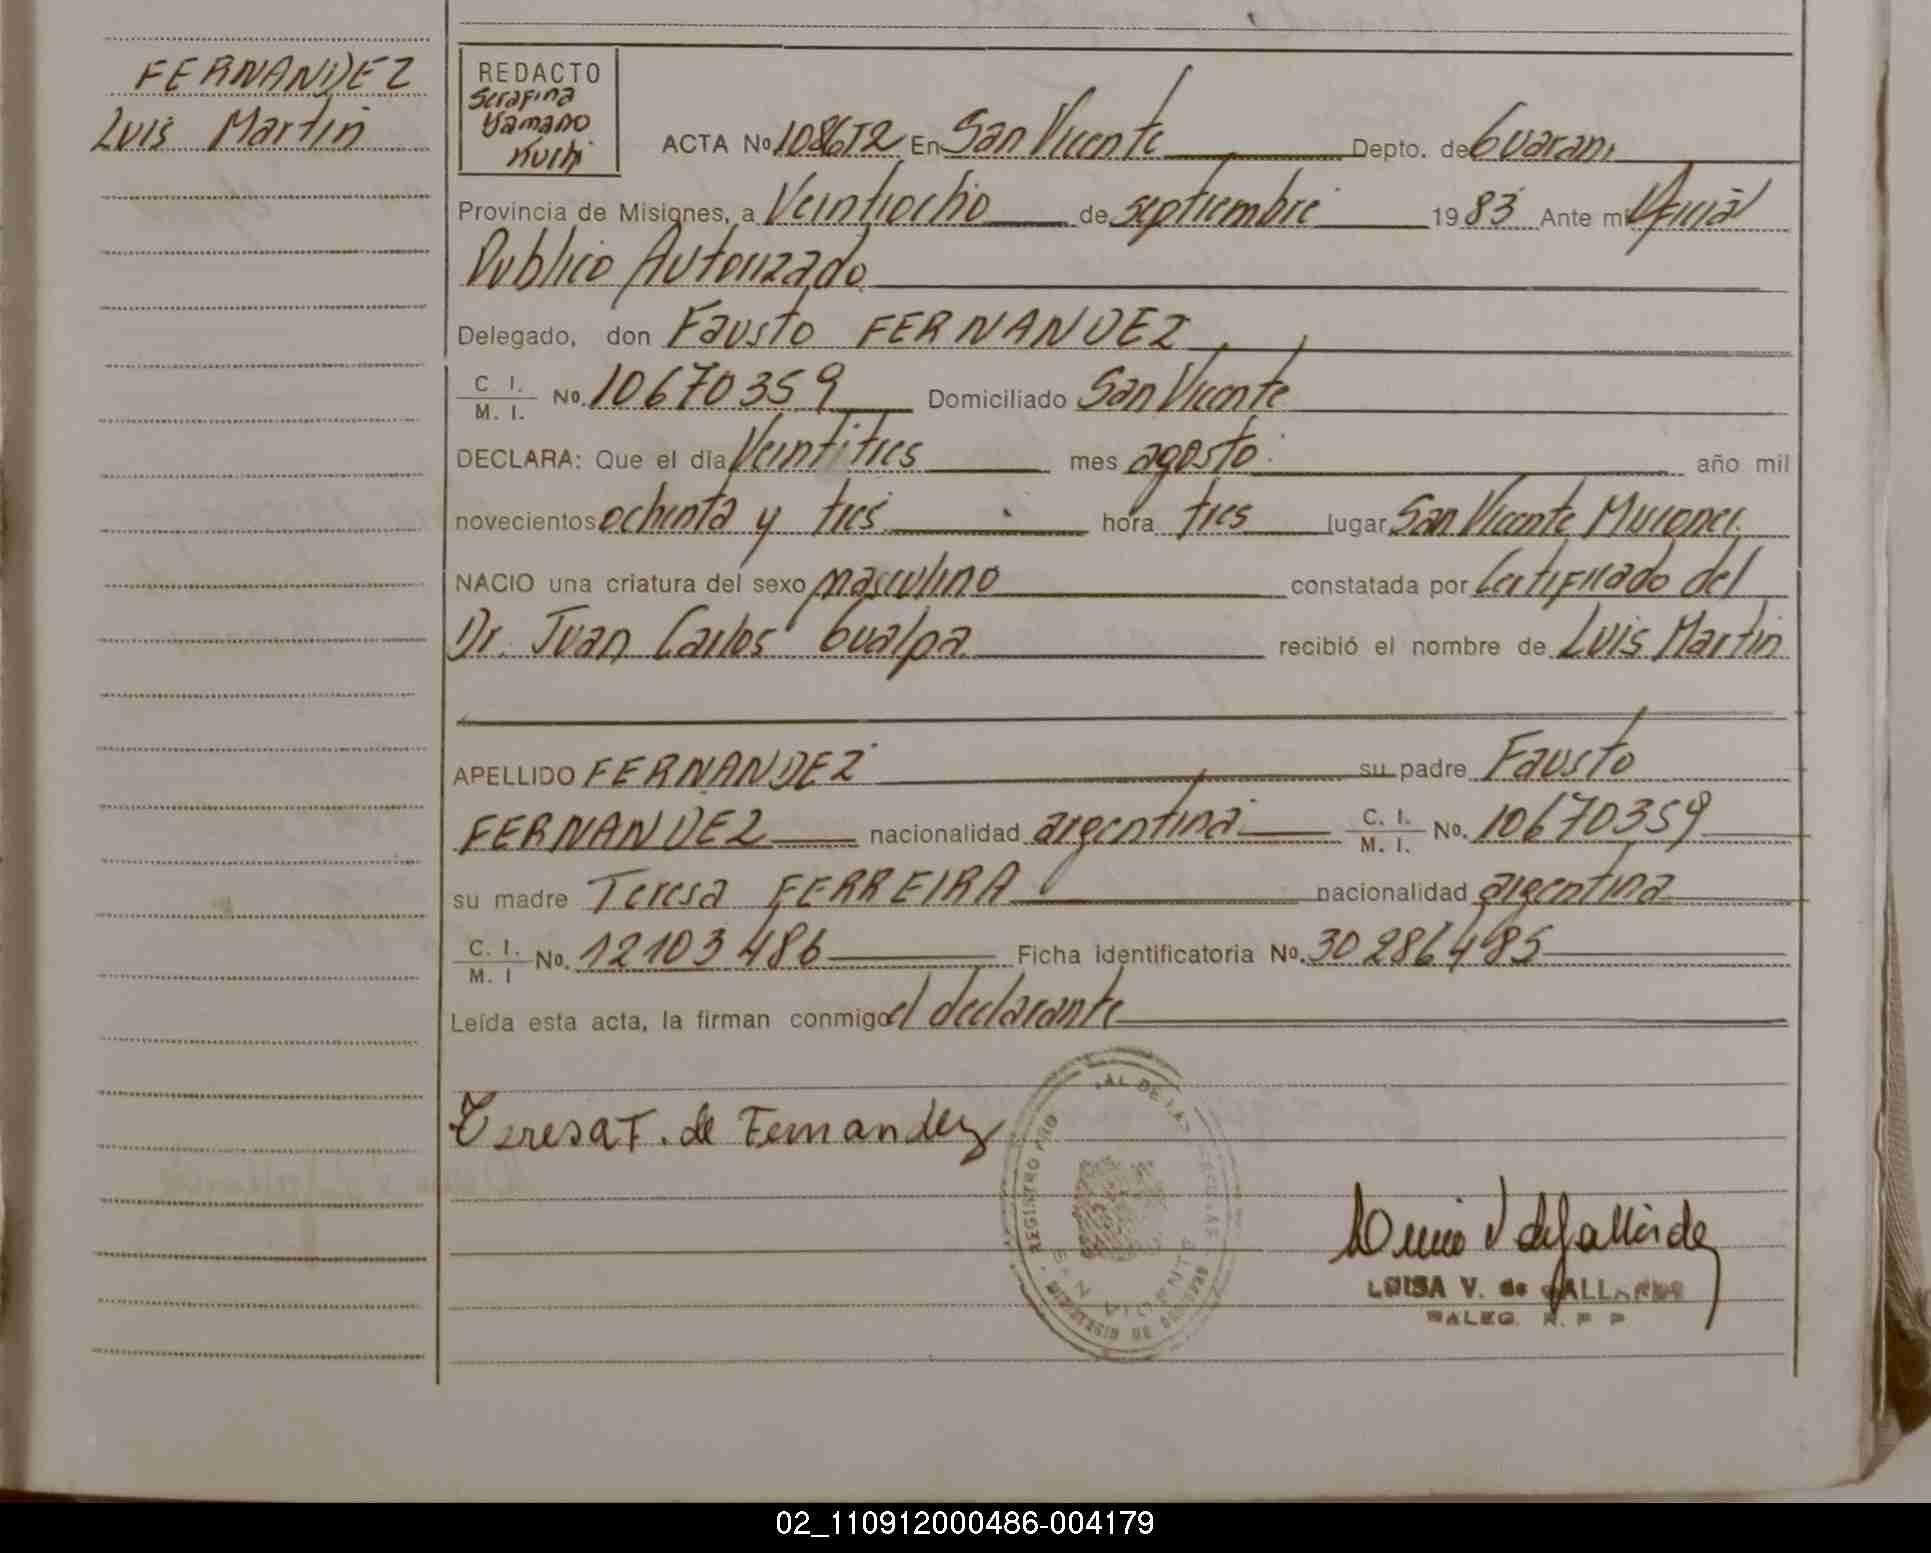 FERNANDEZ
Luis Martin
REDACTO
Serafina
Kuchi
ACTA No 108672 En San Vicente Depto. de Guarani
Provincia de Misiones, a Veintiocho de septiembre 1983 Ante mi Oficial
Publico Autorizado
Delegado, don Fausto FERNANDEZ
C. I. / M. I. No. 10670359 Domiciliado San Vicente
DECLARA: Que el dia Veintitres mes agosto año mil
novecientos ochenta y tres hora tres lugar San Vicente Misiones.
NACIO una criatura del sexo masculino constatada por Certificado del
Dr. Juan Carlos Gualpa recibió el nombre de Luis Martin
APELLIDO FERNANDEZ su padre Fausto
FERNANDEZ nacionalidad argentina C. I. / M. I. No. 10670359
su madre Teresa FERREIRA nacionalidad argentina
C. I. / M. I No. 12103486 Ficha identificatoria No. 30286485
Leída esta acta, la firman conmigo el declarante
Teresa F. de Fernandez
REGISTRO PRO AL DE LAS
SAN VICENTE
LUISA V. de GALLARDO
DELEG. R. P. P
02_110912000486-004179